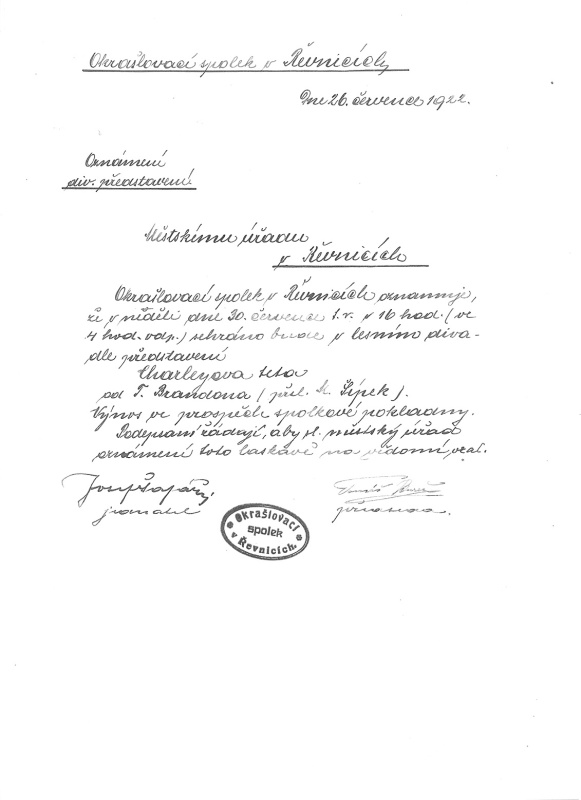 Okrašlovací spolek v Řevnicích
Dne 26. července 1922.
Oznámení
div. představení
Městskému úřadu
v Řevnicích
Okrašlovací spolek v Řevnicích oznamuje,
že v neděli dne 30. července t. r. v 16 hod. (ve
4 hod. odp.) sehráno bude v lesním diva-
dle představení
Charleyova teta
od T. Brandona (přel. A. Šípek).
Výnos ve prospěch spolkové pokladny.
Podepsaní žádají, aby sl. městský úřad
oznámení toto laskavě na vědomí vzal.
Josef
jednatel
předseda
Okrašlovací
spolek
v Řevnicích.